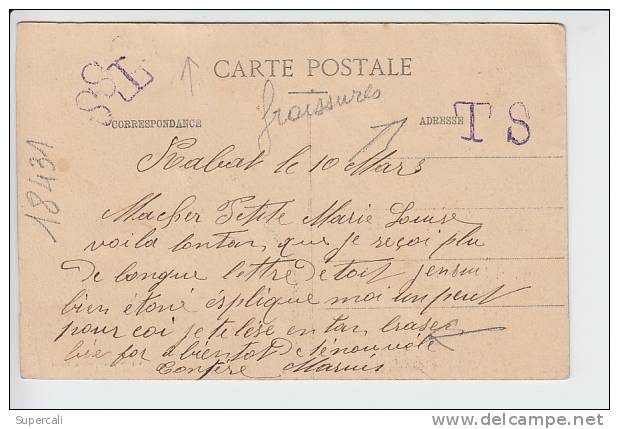 CARTE POSTALE
froissures
CORRESPONDANCE
ADRESSE
T S
18431
Rabat le 10 Mars
Macher Petite Marie Louise
voila lontan que je reçoi plu
de longue lettre de toit jensui
bien étoné ésplique moi un peut
pour coi je te lése en tan brasé
bié for a bientot de sénouvéle
Tonfére
Supercali
www.delcampe.net